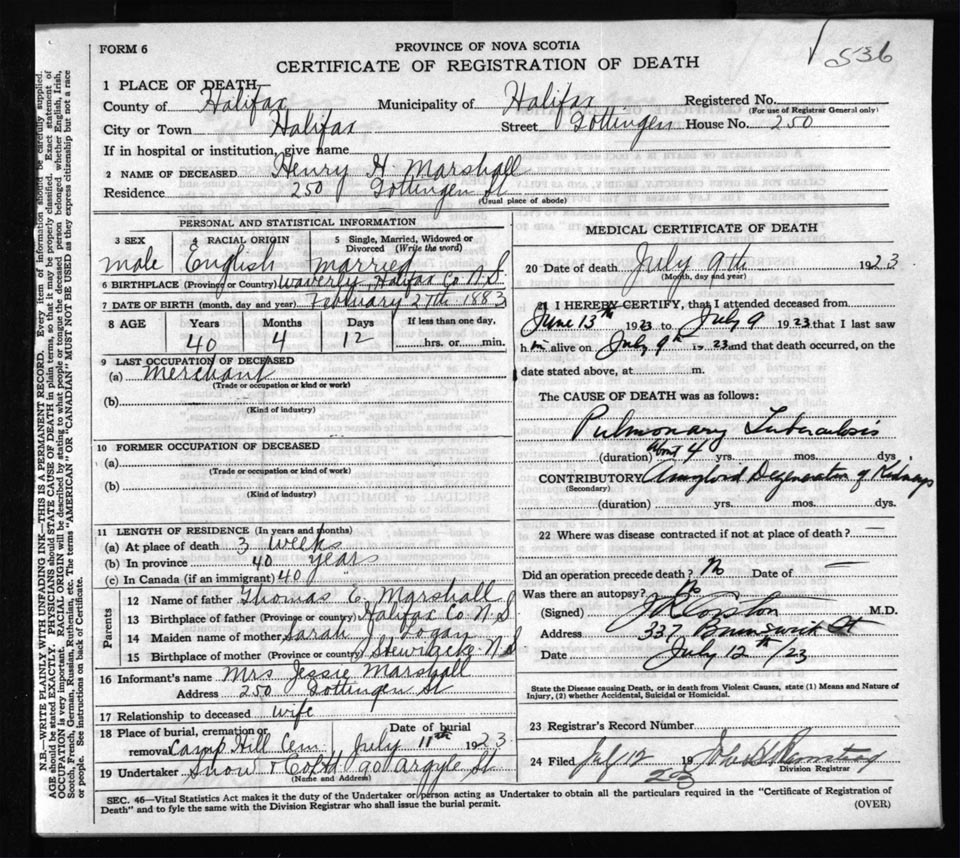 536
FORM 6
PROVINCE OF NOVA SCOTIA
CERTIFICATE OF REGISTRATION OF DEATH
1 PLACE OF DEATH
County of Halifax Municipality of Halifax Registered No.
(For use of Registrar General only)
City or Town Halifax Street Gottingen House No. 250
If in hospital or institution, give name
2 NAME OF DECEASED Henry H. Marshall
Residence 250 Gottingen St
(Usual place of abode)
PERSONAL AND STATISTICAL INFORMATION
3 SEX 4 RACIAL ORIGIN 5 Single, Married, Widowed or Divorced (Write the word)
male English married
6 BIRTHPLACE (Province or Country) Waverly Halifax Co N.S.
7 DATE OF BIRTH (month, day and year) February 27th 1883
8 AGE Years Months Days If less than one day,
40 4 12 hrs. or min.
9 LAST OCCUPATION OF DECEASED
(a) Merchant
(Trade or occupation or kind or work)
(b)
(Kind of industry)
10 FORMER OCCUPATION OF DECEASED
(a)
(Trade or occupation or kind or work)
(b)
(Kind of industry)
11 LENGTH OF RESIDENCE (In years and months)
(a) At place of death 3 weeks
(b) In province 40 years
(c) In Canada (if an immigrant) 40 "
Parents
12 Name of father Thomas E. Marshall
13 Birthplace of father (Province or country) Halifax Co N.S.
14 Maiden name of mother Sarah J. Logan
15 Birthplace of mother (Province or country) Stewiacke N.S
16 Informant's name Mrs Jessie Marshall
Address 250 Gottingen St
17 Relationship to deceased wife
18 Place of burial, cremation or Date of burial
removal Camp Hill Cem July 11th 1923
19 Undertaker Snow & Co Ltd 90 Argyle St
(Name and Address)
MEDICAL CERTIFICATE OF DEATH
20 Date of death July 9th 1923
(Month, day and year)
21 I HEREBY CERTIFY, that I attended deceased from
June 13th 1923 to July 9 1923 that I last saw
him alive on July 9th is 23 and that death occurred, on the
date stated above, at m.
The CAUSE OF DEATH was as follows:
Pulmonary Tuberculosis
(duration) about 40 yrs. mos. dys
CONTRIBUTORY Amyloid Degeneration of Kidneys
(Secondary)
(duration) yrs. mos. dys.
22 Where was disease contracted if not at place of death? —
Did an operation precede death? No Date of —
Was there an autopsy? No
(Signed) M.D.
Address 337 Brunswick St
Date July 12th/23
State the Disease causing Death, or in death from Violent Causes, state (1) Means and Nature of
Injury, (2) whether Accidental, Suicidal or Homicidal.
23 Registrar's Record Number
24 Filed July 12 19
Division Registrar
SEC. 46—Vital Statistics Act makes it the duty of the Undertaker or person acting as Undertaker to obtain all the particulars required in the "Certificate of Registration of
Death" and to fyle the same with the Division Registrar who shall issue the burial permit.
(OVER)
N.B.—WRITE PLAINLY WITH UNFADING INK—THIS IS A PERMANENT RECORD. Every item of information should be carefully supplied.
AGE should be stated EXACTLY. PHYSICIANS should STATE CAUSE OF DEATH in plain terms, so that it may be properly classified. Exact statement of
OCCUPATION is very important. RACIAL ORIGIN will be described by stating to what people or tongue the deceased person belonged, whether English, Irish,
Scotch, French, German, Russian, Ruthenian, etc. The terms "AMERICAN" OR "CANADIAN" MUST NOT BE USED as they express citizenship but not a race
or people. See instructions on back of Certificate.